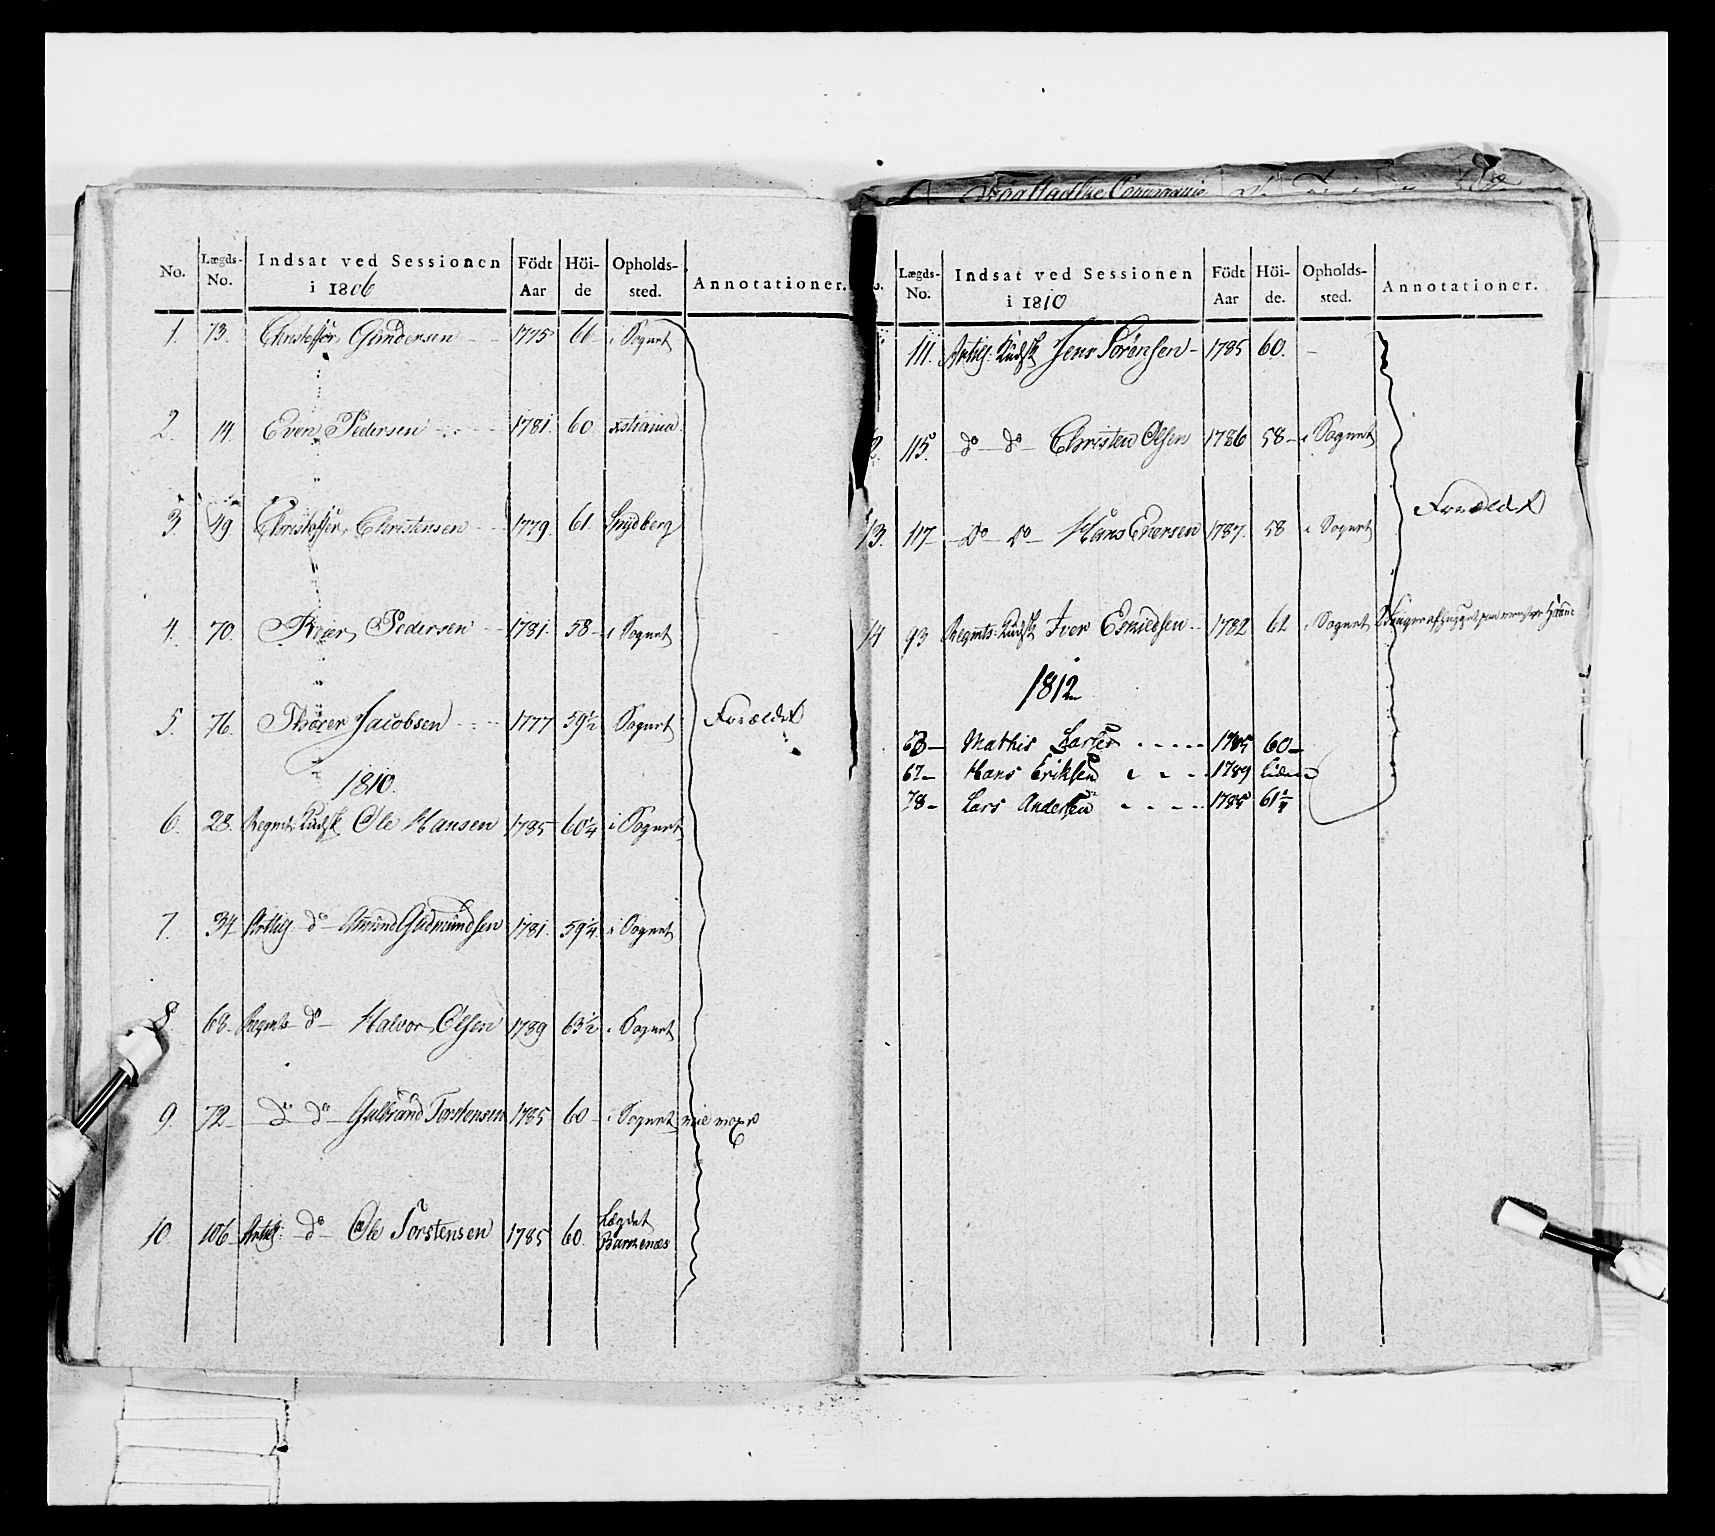 No. Lægds-No. Indsat ved Sessionen i 1806 Födt Aar Höi-de Opholds-sted. Annotationer.
1. 13. Christoffer Gundersen 1775 66 i Sognet
2. 14 Even Pedersen 1781. 60 xstiania
3. 49 Christoffer Christensen 1779. 61. Spydberg
4. 70. Peder Pedersen 1781. 58 i Sognet
5. 76. Thorer Jacobsen 1777 59½ Sognet Forældet
1810.
6. 28. Regmts Kudsk Ole Hansen 1785 60¼ i Sognet
7. 34 Artlg. do Amund Gudmundsen 1781. 59¼ i Sognet
8. 68 Regmts do Halvor Olsen 1789 63½ i Sognet
9. 72 do do Gulbrand Torstensen 1785 60 i Sognet
10. 106 Artlg: do Ole Torstensen 1785 60. Lægdet
Barnenæs
Compagnie
No. Lægds-No. Indsat ved Sessionen i 1810 Födt Aar Höi-de. Opholds-sted. Annotationer.
111. Artlg: Kudsk Jens Sörensen 1785 60. –
2. 115. do do Christen Olsen 1786 58 i Sognet
Forældet
13. 117 do do Hans Evensen 1787. 58 i Sognet
14 93 Regmts: Kudsk Iver Esmiedsen 1782 62 i Sognet
1812
63 Mathis Larsen 1785 60
67 Hans Eriksen 1789 Liden
78 Lars Andersen 1785 61¼